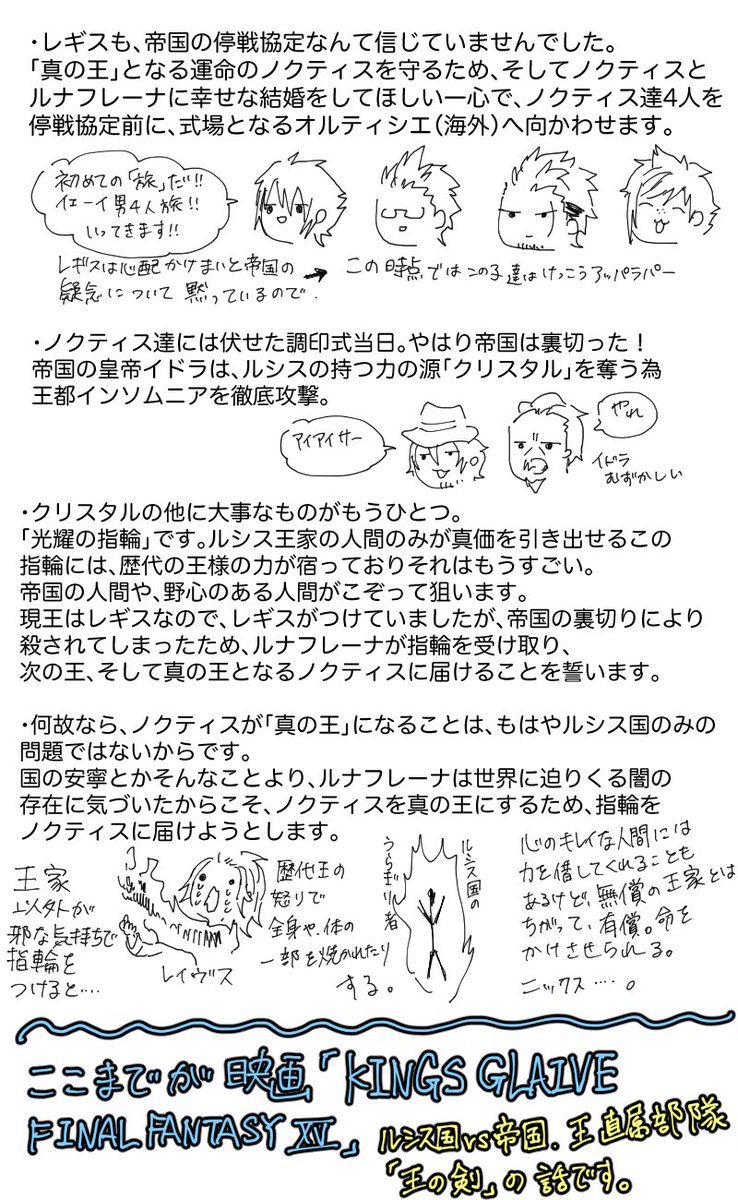 ・レギスも、帝国の停戦協定なんて信じていませんでした。
「真の王」となる運命のノクティスを守るため、そしてノクティスと
ルナフレーナに幸せな結婚をしてほしい一心で、ノクティス達4人を
停戦協定前に、式場となるオルティシエ(海外)へ向かわせます。
初めての「旅」だ!!
イェーイ男4人旅!!
いってきます!!
レギスは心配かけまいと帝国の
疑念について黙っているので.
→ この時点ではこの子達はけっこうアッパラパー
・ノクティス達には伏せた調印式当日。やはり帝国は裏切った!
帝国の皇帝イドラは、ルシスの持つ力の源「クリスタル」を奪う為
王都インソムニアを徹底攻撃。
アイアイサー
やれ
イドラ
むずかしい
・クリスタルの他に大事なものがもうひとつ。
「光耀の指輪」です。ルシス王家の人間のみが真価を引き出せるこの
指輪には、歴代の王様の力が宿っておりそれはもうすごい。
帝国の人間や、野心のある人間がこぞって狙います。
現王はレギスなので、レギスがつけていましたが、帝国の裏切りにより
殺されてしまったため、ルナフレーナが指輪を受け取り、
次の王、そして真の王となるノクティスに届けることを誓います。
・何故なら、ノクティスが「真の王」になることは、もはやルシス国のみの
問題ではないからです。
国の安寧とかそんなことより、ルナフレーナは世界に迫りくる闇の
存在に気づいたからこそ、ノクティスを真の王にするため、指輪を
ノクティスに届けようとします。
王家
以外が
邪な気持ちで
指輪を
つけると....
レイヴス
歴代王の
怒りで
全身や、体の
一部を焼かれたり
する。
ルシス国の
うらぎり者
心のキレイな人間には
力を借してくれることも
あるけど、無償の王家とは
ちがって、有償。命を
かけさせられる。
ニックス....。
ここまでが映画「KINGS GLAIVE
FINAL FANTASY XV」
ルシス国vs帝国.王直属部隊
「王の剣」の話です。